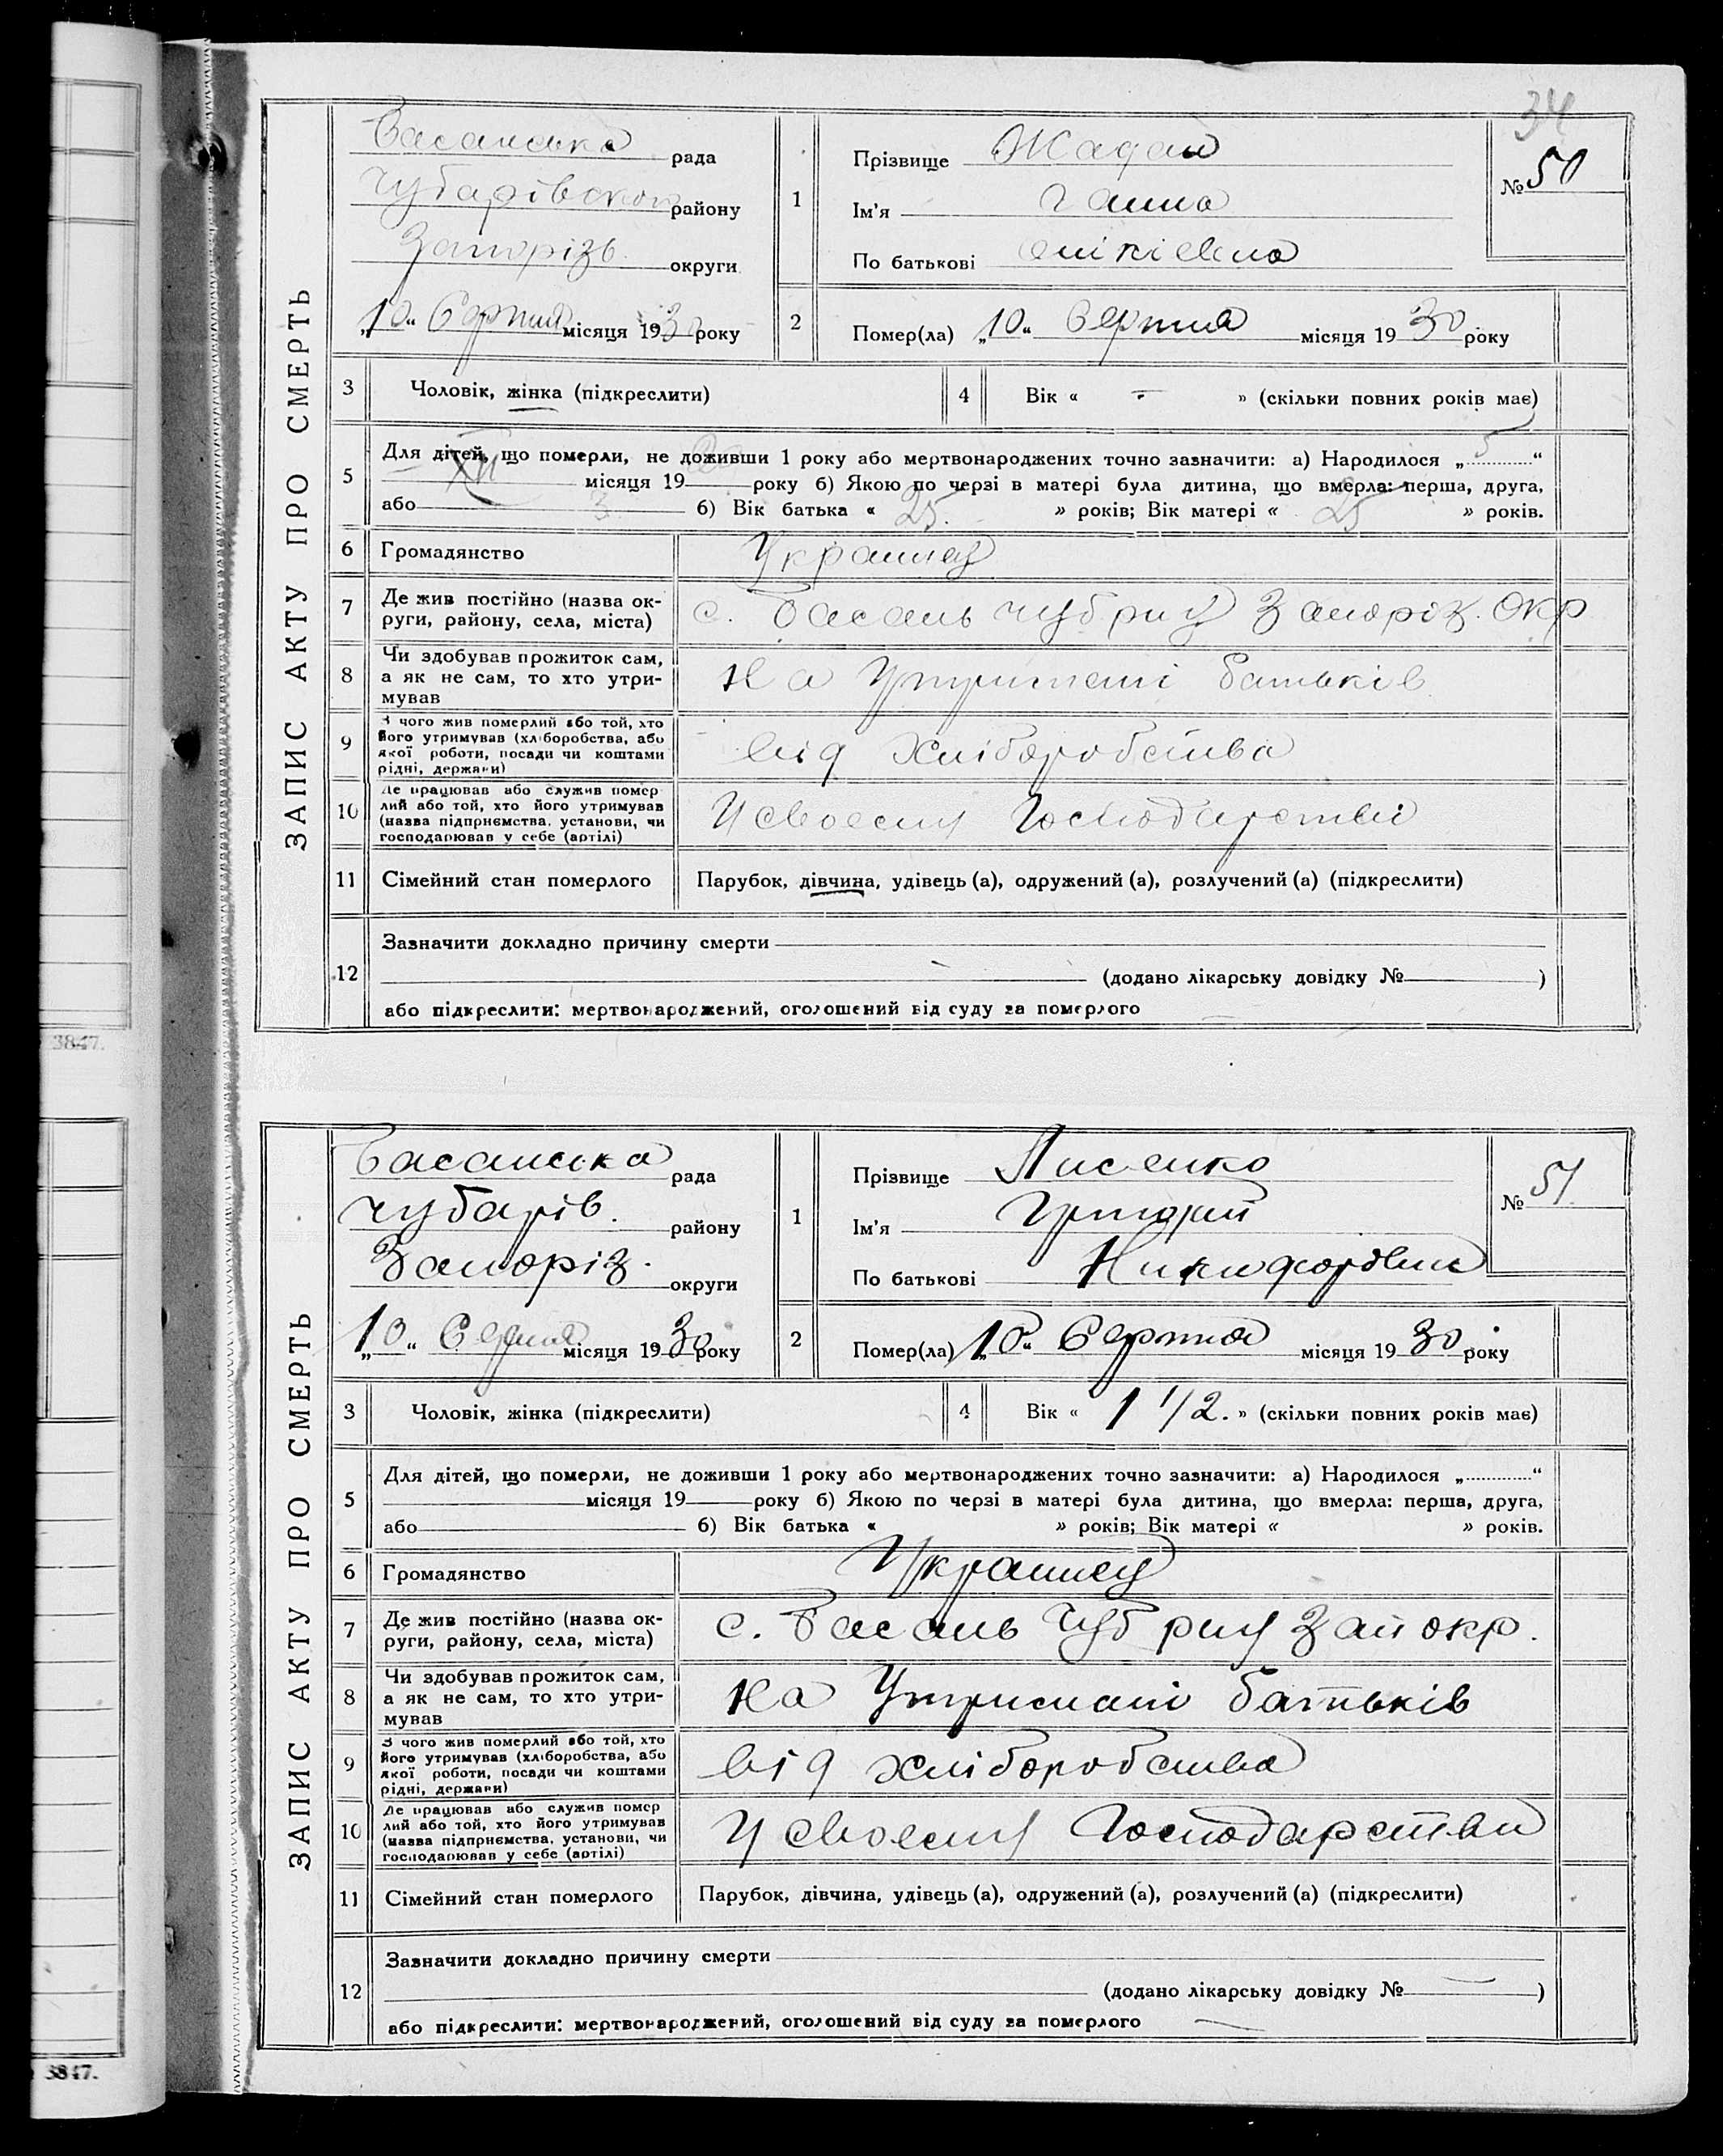 34
ЗАПИС АКТУ ПРО СМЕРТЬ
Басанська рада
Чубарівського району
Запорізь. округи
„10“ Серпня місяця 1930 року
1 Прізвище Жадан
Ім'я Ганна
По батькові
№ 50
2 Помер(ла) „10“ Серпня місяця 1930 року
3 Чоловік, жінка (підкреслити)
4 Вік « - » (скільки повних років має)
5 Для дітей, що померли, не доживши 1 року або мертвонароджених точно зазначити: а) Народилося „5“
XII місяця 19 року б) Якою по черзі в матері була дитина, що вмерла: перша, друга,
або 3 б) Вік батька « 25. » років; Вік матері « 25 » років.
6 Громадянство Украинец
7 Де жив постійно (назва ок-
руги, району, села, міста) с. Басань Чуб рну Запоріз. Окр
8 Чи здобував прожиток сам,
а як не сам, то хто утри-
мував На Утримані батьків
9 З чого жив померлий або той, хто
його утримував (хліборобства, або
якої роботи, посади чи коштами
рідні, держави) від хліборобства
10 Де працював або служив помер
лий або той, хто його утримував
(назва підприємства, установи, чи
господарював у себе (артілі) У своєму Господарстві
11 Сімейний стан померлого Парубок, дівчина, удівець (а), одружений (а), розлучений (а) (підкреслити)
12 Зазначити докладно причину смерти
(додано лікарську довідку № )
або підкреслити: мертвонароджений, оголошений від суду за померлого
3847.
ЗАПИС АКТУ ПРО СМЕРТЬ
Басанська рада
Чубарів. району
Запоріз. округи
„10“ Серпня місяця 1930 року
1 Прізвище Лисенко
Ім'я Григорий
По батькові Никифорович
№ 51.
2 Помер(ла) „10“ Серпня місяця 1930 року
3 Чоловік, жінка (підкреслити)
4 Вік « 1 1/2. » (скільки повних років має)
5 Для дітей, що померли, не доживши 1 року або мертвонароджених точно зазначити: а) Народилося „ “
місяця 19 року б) Якою по черзі в матері була дитина, що вмерла: перша, друга,
або б) Вік батька « » років; Вік матері « » років.
6 Громадянство Украинец
7 Де жив постійно (назва ок-
руги, району, села, міста) с. Басань Чуб рну Зап окр.
8 Чи здобував прожиток сам,
а як не сам, то хто утри-
мував На Утримані батьків
9 З чого жив померлий або той, хто
його утримував (хліборобства, або
якої роботи, посади чи коштами
рідні, держави) від хліборобства
10 Де працював або служив помер
лий або той, хто його утримував
(назва підприємства, установи, чи
господарював у себе (артілі) У своєму Господарстви
11 Сімейний стан померлого Парубок, дівчина, удівець (а), одружений (а), розлучений (а) (підкреслити)
12 Зазначити докладно причину смерти
(додано лікарську довідку № )
або підкреслити: мертвонароджений, оголошений від суду за померлого
3847.